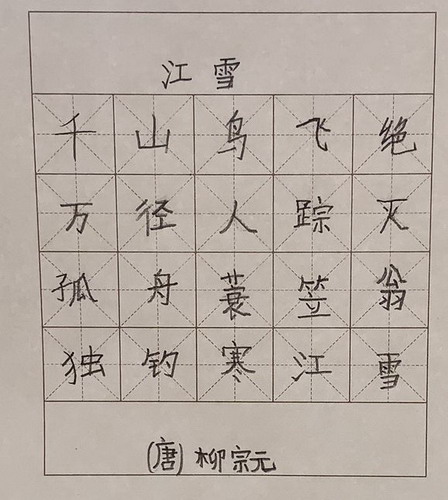 江雪
千山鸟飞绝
万径人踪灭
孤舟蓑笠翁
独钓寒江雪
(唐) 柳宗元